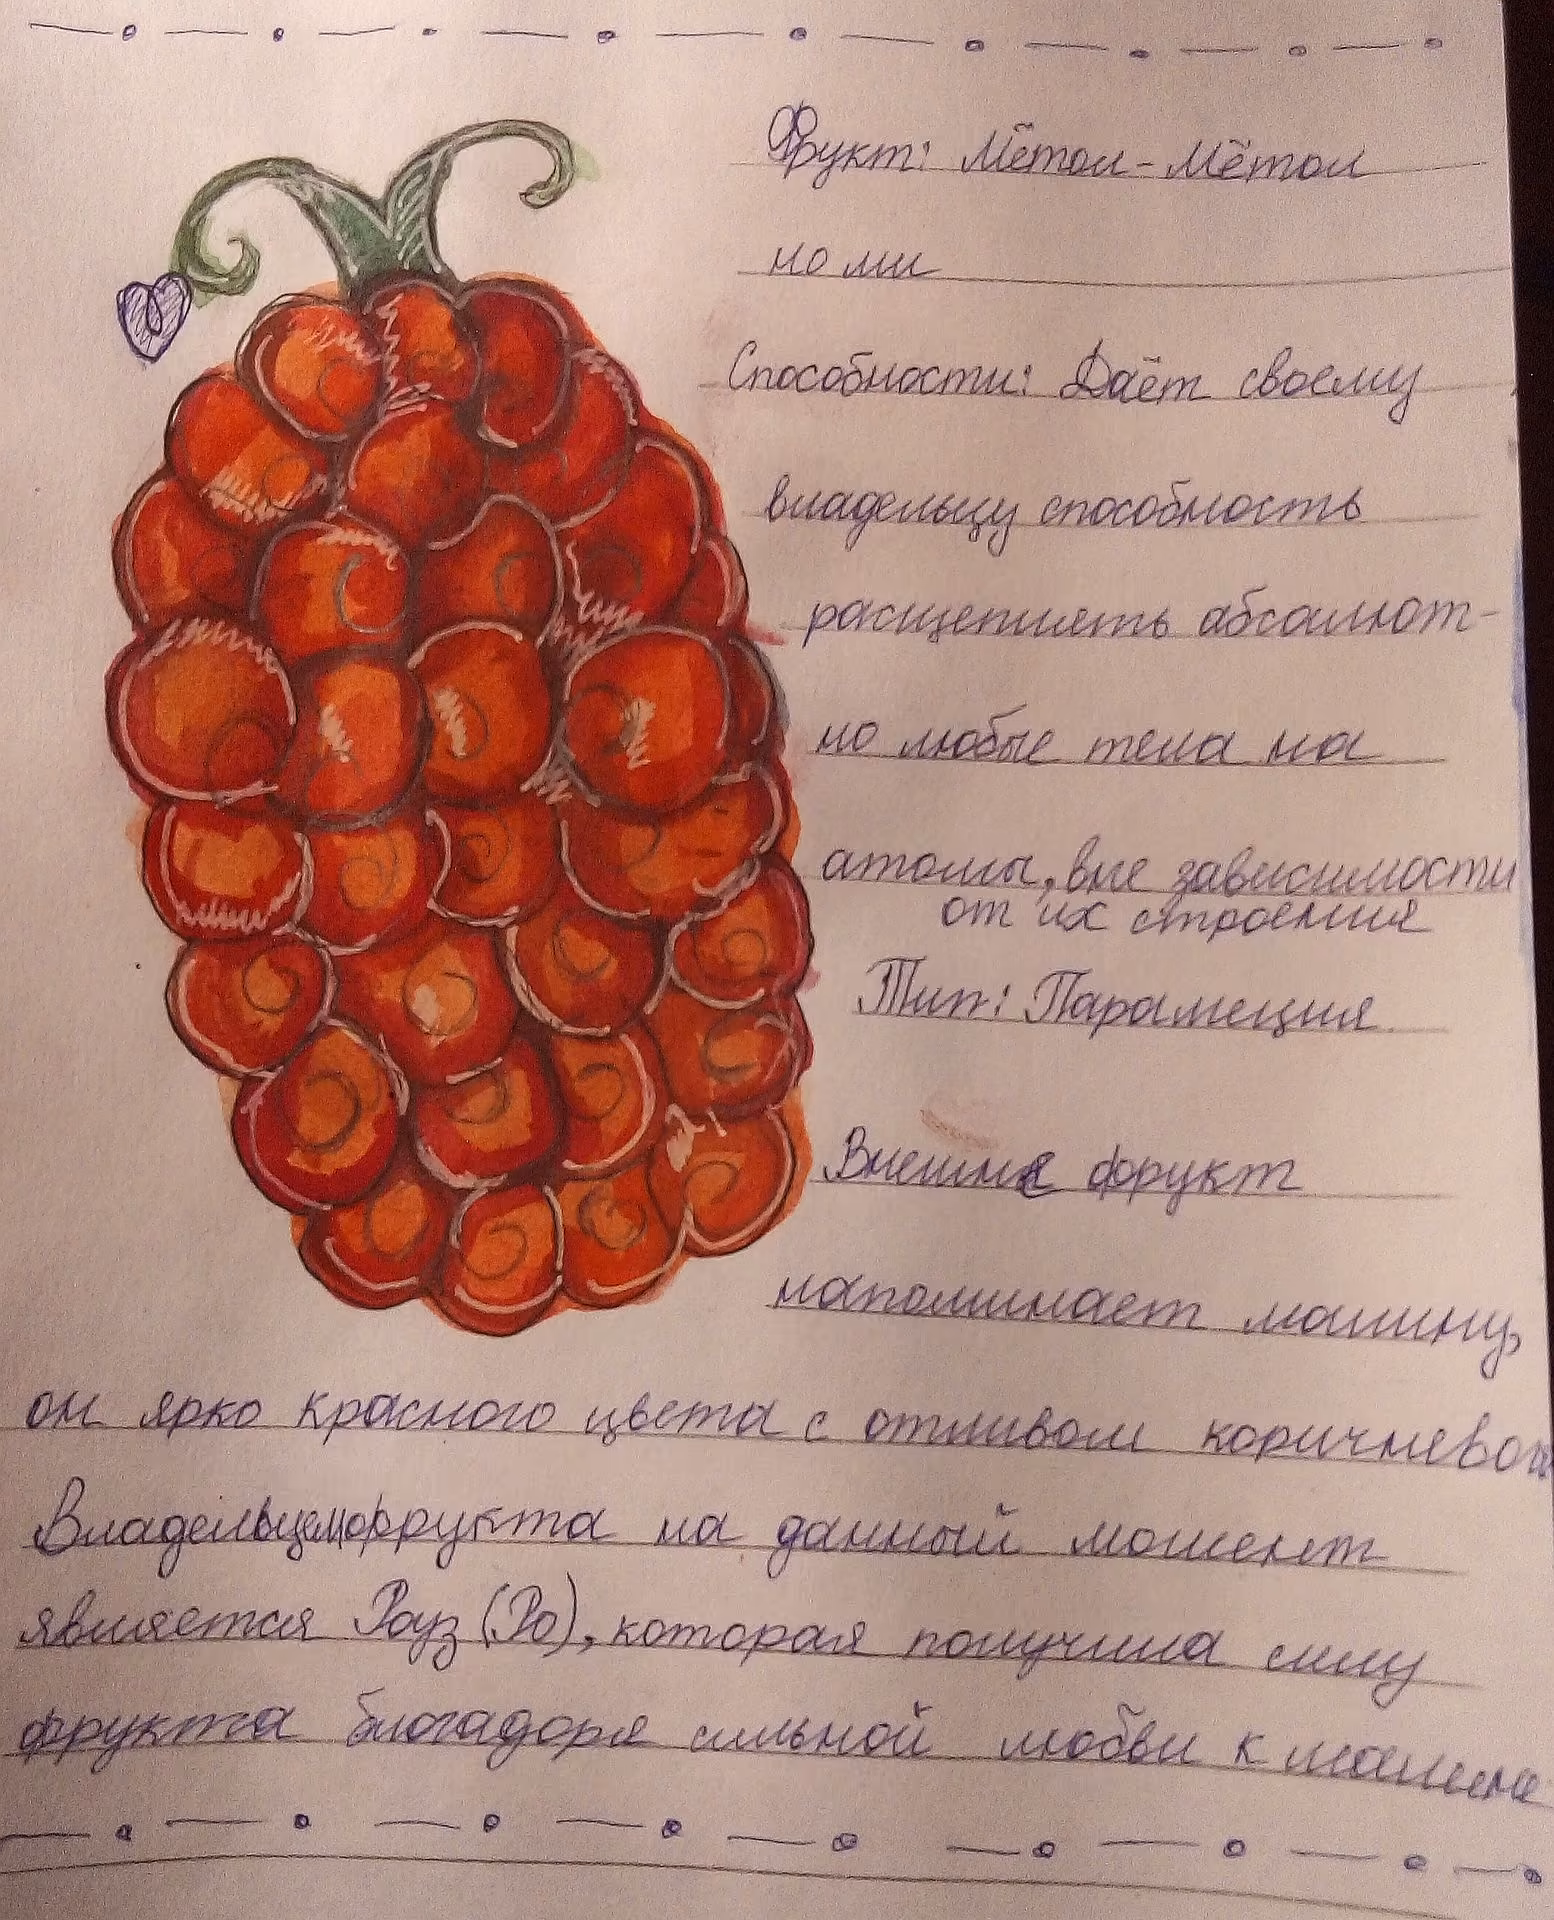 Фрукт: Мётол-Мётол
но ми
Способности: Даёт своему
владельцу способность
расщеплять абсолют-
но любые тела на
атомы, вне зависимости
от их строения
Тип: Парамеция
Внешне фрукт
напоминает малину,
он ярко красного цвета с отливом коричневого
Владельцем фрукта на данный момент
является Роуз (Ро), которая получила силу
фрукта благадоря сильной любви к малине